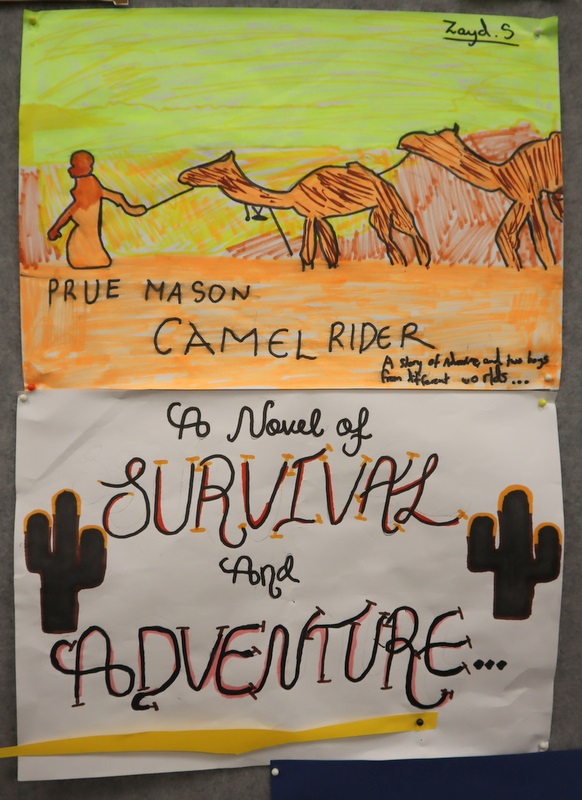 Zayd. S
PRUE MASON
CAMEL RIDER
A story of Adventure, and two boys
from different worlds...
A Novel of
SURVIVAL
And
ADVENTURE...